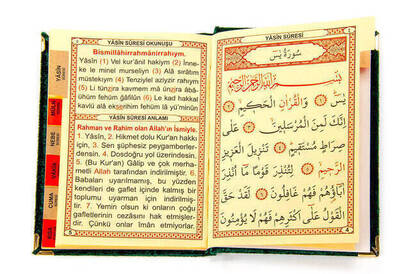 YÂSÎN SÛRESİ OKUNUŞU
Bismillâhirrahmânirrahıym.
1) Yâsîn (1) Vel kur'ânil hakiym (2) İnne-
ke le minel murseliyn (3) Alâ sırâtım
müstekıym (4) Tenziylel aziyzir rahıym
(5) Li tünzira kavmem mâ ünzira âbâ-
ühüm fehüm ğâfilûn (6) Le kad hakkal
kavlü alâ ekserihim fehüm lâ yü'minûn
YÂSÎN SÛRESİ ANLAMI
Rahman ve Rahim olan Allah'ın İsmiyle.
1. Yâsîn, 2. Hikmet dolu Kur'an hakkı
için, 3. Sen şüphesiz peygamberler-
densin. 4. Dosdoğru yol üzerindesin.
5. (Bu Kur'an) Gâlip ve çok merha-
metli Allah tarafından indirilmiştir. 6.
Babaları uyarılmamış, bu yüzden
kendileri de gaflet içinde kalmış bir
toplumu uyarman için indirilmiştir.
7. Yemin olsun ki onların çoğu
gafletlerinin cezasını hak etmişler-
dir. Çünkü onlar iman etmiyorlar.
YÂSÎN
MÜLK
NEBE
CUMA
YÂSÎN SÛRESİ
سُورَةُ يٰسٓ
بِسْمِ اللّٰهِ الرَّحْمٰنِ الرَّحِيمِ
يٰسٓ ﴿١﴾ وَالْقُرْاٰنِ الْحَكِيمِ ﴿٢﴾
اِنَّكَ لَمِنَ الْمُرْسَلِينَ ﴿٣﴾ عَلٰى
صِرَاطٍ مُسْتَقِيمٍ ﴿٤﴾ تَنْزِيلَ الْعَزِيزِ
الرَّحِيمِ ﴿٥﴾ لِتُنْذِرَ قَوْمًا مَا اُنْذِرَ
اٰبَاؤُهُمْ فَهُمْ غَافِلُونَ ﴿٦﴾ لَقَدْ حَقَّ
الْقَوْلُ عَلٰى اَكْثَرِهِمْ فَهُمْ لَا يُؤْمِنُونَ
4